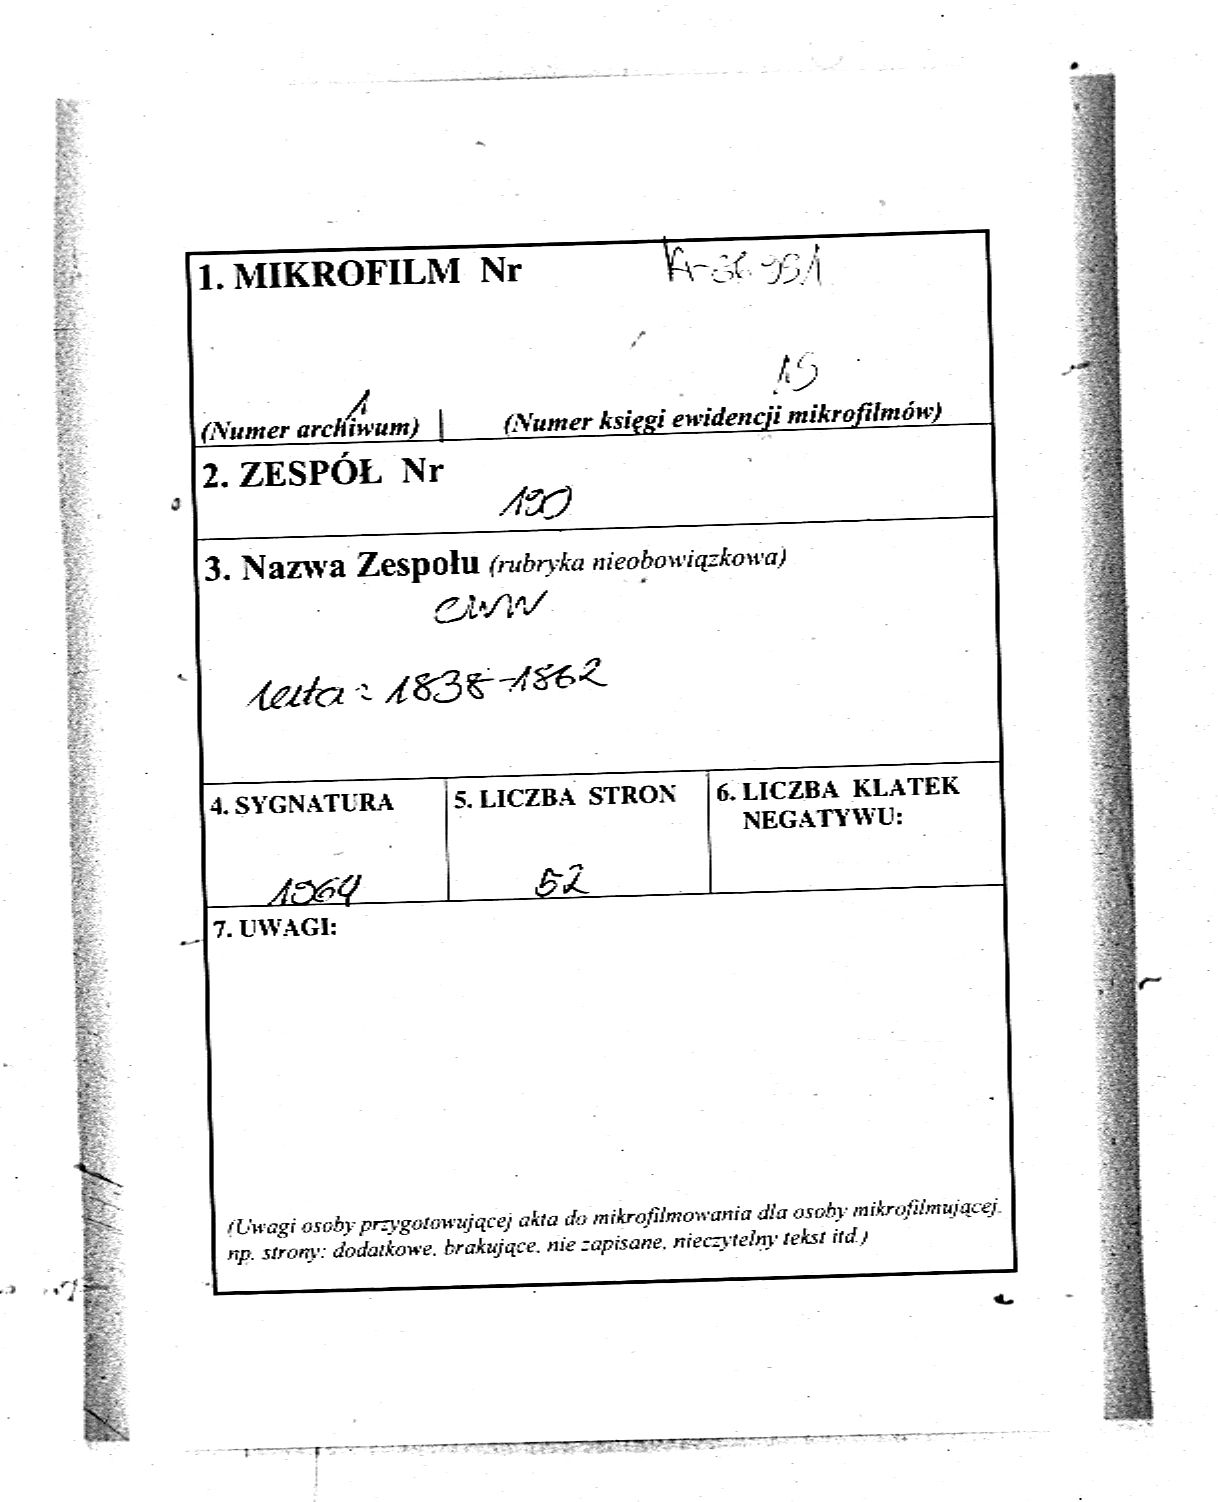 1. MIKROFILM Nr
1 15
(Numer archiwum) (Numer księgi ewidencji mikrofilmów)
2. ZESPÓŁ Nr
190
3. Nazwa Zespołu (rubryka nieobowiązkowa)
CWW
1838-1862
4. SYGNATURA 5. LICZBA STRON 6. LICZBA KLATEK
NEGATYWU:
1964 52
7. UWAGI:
(Uwagi osoby przygotowującej akta do mikrofilmowania dla osoby mikrofilmującej.
np. strony: dodatkowe, brakujące, nie zapisane, nieczytelny tekst itd.)